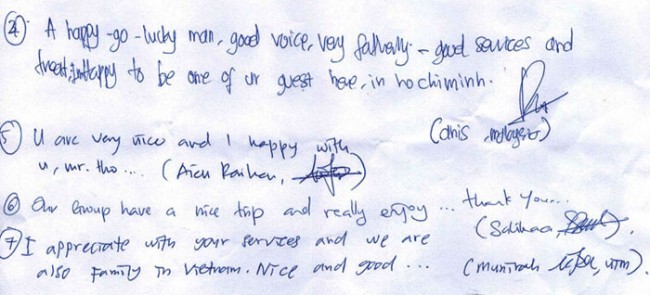 ④ A happy-go-lucky man, good voice, very fatherly - good services and
treat, Happy to be one of ur guest here, in hochiminh.
(anis, malaysia)
⑤ U are very nice and I happy with
u, mr. tho.... (Aien Raihan,
⑥ Our Group have a nice trip and really enjoy ... thank you...
(Saliha
⑦ I appreciate with your services and we are
also Family in Vietnam. Nice and good ... (munirah, uitm).